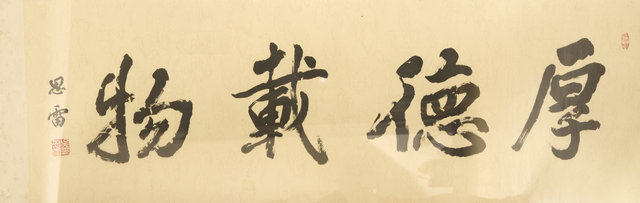 厚德載物
思雷